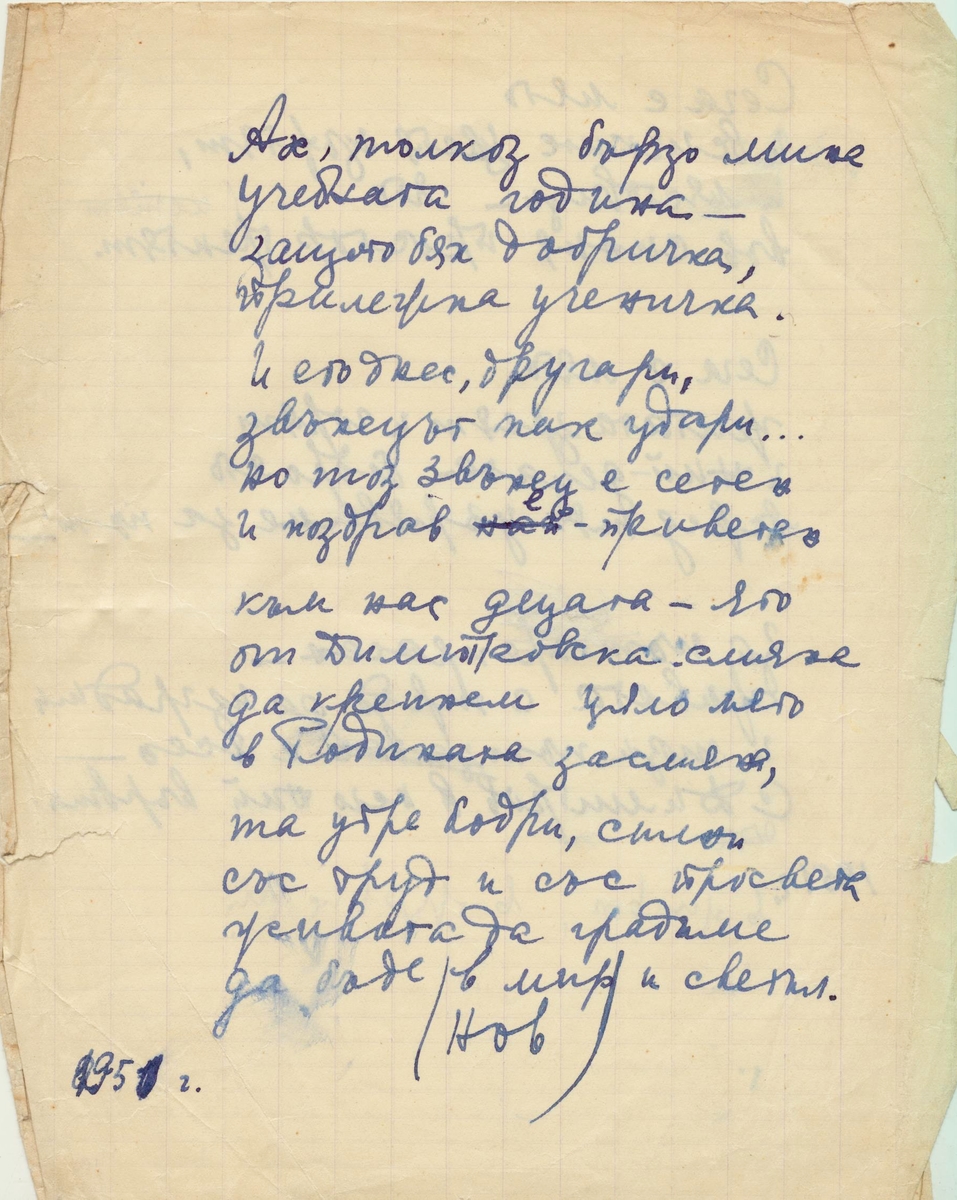 Ах, толкоз бързо мина
учебната година —
защото бях добричка,
прилежна ученичка.
И ето днес, другари,
звънецът пак удари...
но тоз звънец е сетен
и поздрав е приветен
към нас децата — ято
от Димитровска смяна
да крепнем цяло лято
в Родината засмяна,
та утре бодри, силни
със труд и със просвета
живота да градиме
да бъде (в мир) и светъл.
(Нов)
1951 г.